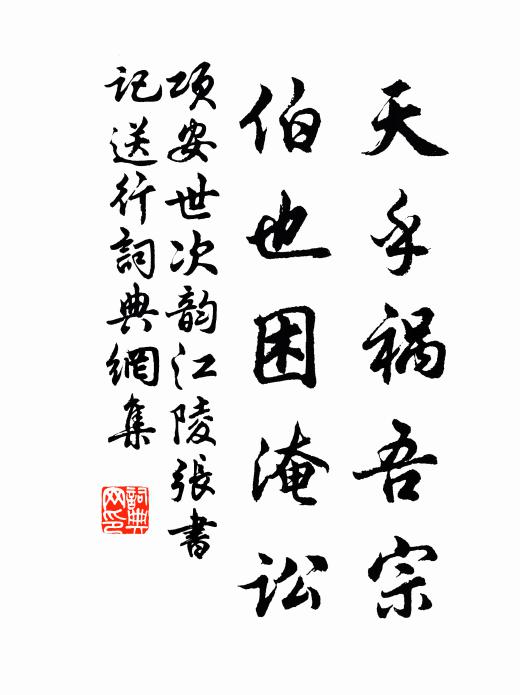 天乎祸吾宗
伯也困淹讼
项安世次韵江陵張書
记送行詞典網集
詞典网印